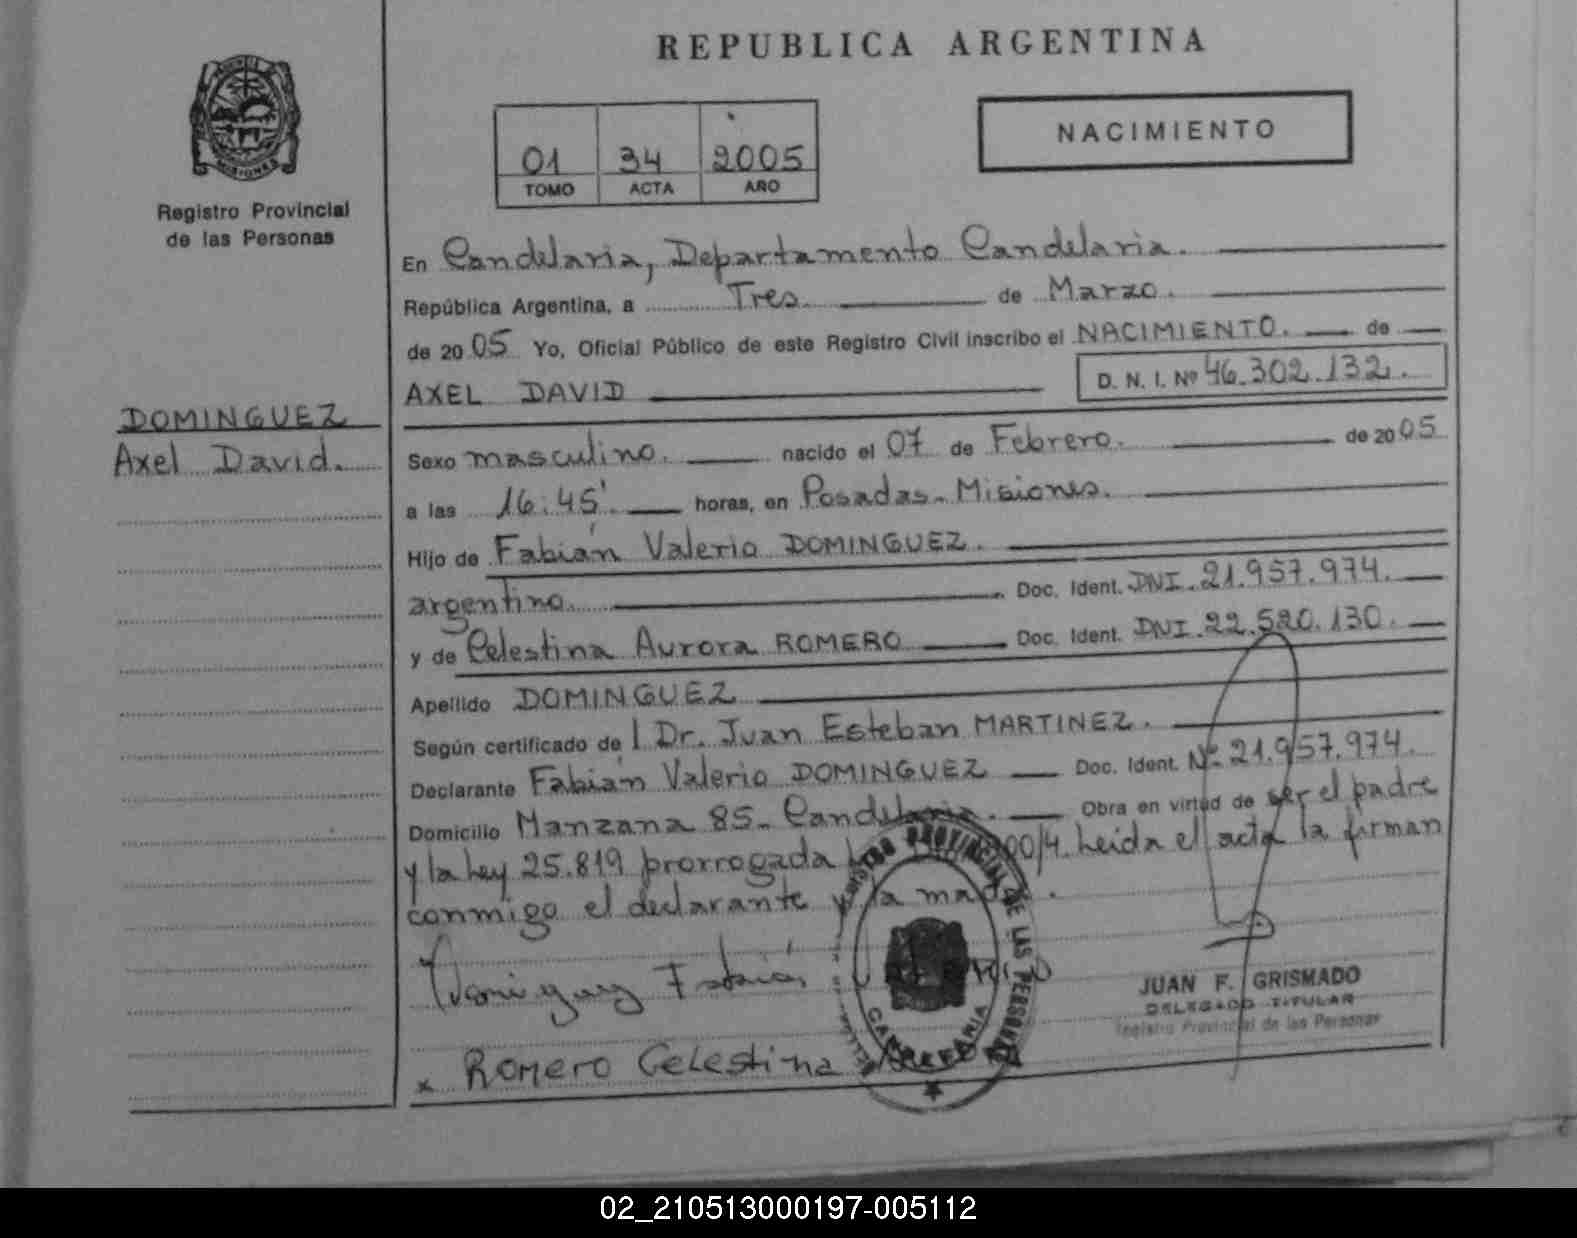 REPUBLICA ARGENTINA
Registro Provincial
de las Personas
01 34 2005
TOMO ACTA AÑO
NACIMIENTO
En Candelaria, Departamento Candelaria.
República Argentina, a Tres de Marzo.
de 2005 Yo, Oficial Público de este Registro Civil inscribo el NACIMIENTO. de
AXEL DAVID D. N. I. Nº 46.302.132.
DOMINGUEZ
Axel David.
Sexo masculino. nacido el 07 de Febrero. de 2005
a las 16:45' horas, en Posadas-Misiones.
Hijo de Fabián Valerio DOMINGUEZ.
argentino. Doc. Ident. DNI.21.957.974.
y de Celestina Aurora ROMERO Doc. Ident. DNI.22.520.130.
Apellido DOMINGUEZ
Según certificado del Dr. Juan Esteban MARTINEZ.
Declarante Fabián Valerio DOMINGUEZ Doc. Ident. Nº 21.957.974.
Domicilio Manzana 85- Candelaria. Obra en virtud de ser el padre
y la Ley 25.819 prorrogada 00/4. Leída el acta la firman
conmigo el declarante y la
Dominguez Fabián
Romero Celestina
REGISTRO PROVINCIAL DE LAS PERSONAS
CANDELARIA
JUAN F. GRISMADO
DELEGADO TITULAR
Registro Provincial de las Personas
02_210513000197-005112